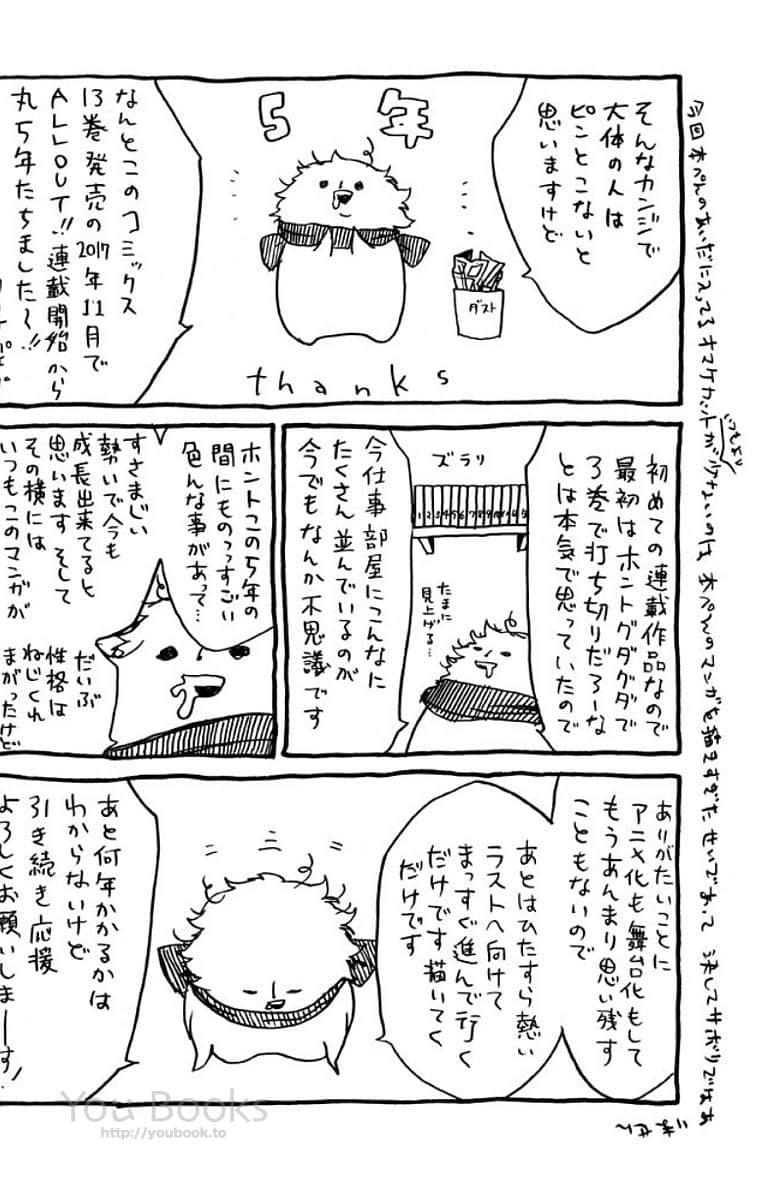 そんなカンジで
大体の人は
ピンとこないと
思いますけど
5年
ダスト
thanks
なんとこのコミックス
13巻発売の2017年11月で
ALLOUT!!連載開始から
丸5年たちました〜!!
初めての連載作品なので
最初はホントグダグダで
3巻で打ち切りだろーな
とは本気で思っていたので
ズラリ
たまに
見上げる…
今仕事部屋にこんなに
たくさん並んでいるのが
今でもなんか不思議です
ホントこの5年の
間にものっっすごい
色んな事があって…
すさまじい
勢いで今も
成長出来てると
思います そして
その横には
いつもこのマンガが
だいぶ
性格は
ねじくれ
まがったけど
ありがたいことに
アニメ化も舞台化もして
もうあんまり思い残す
こともないので
あとはひたすら熱い
ラストへ向けて
まっすぐ進んで行く
だけです 描いてく
だけです
あと何年かかるかは
わからないけど
引き続き応援
よろしくお願いしまーす!
今回本ぺんのあいだに入ってるオマケカットがいつもより少ないのは本ぺんのマンガを描きすぎたせいであって 決してサボりではあ
りません
You Books
http://youbook.to